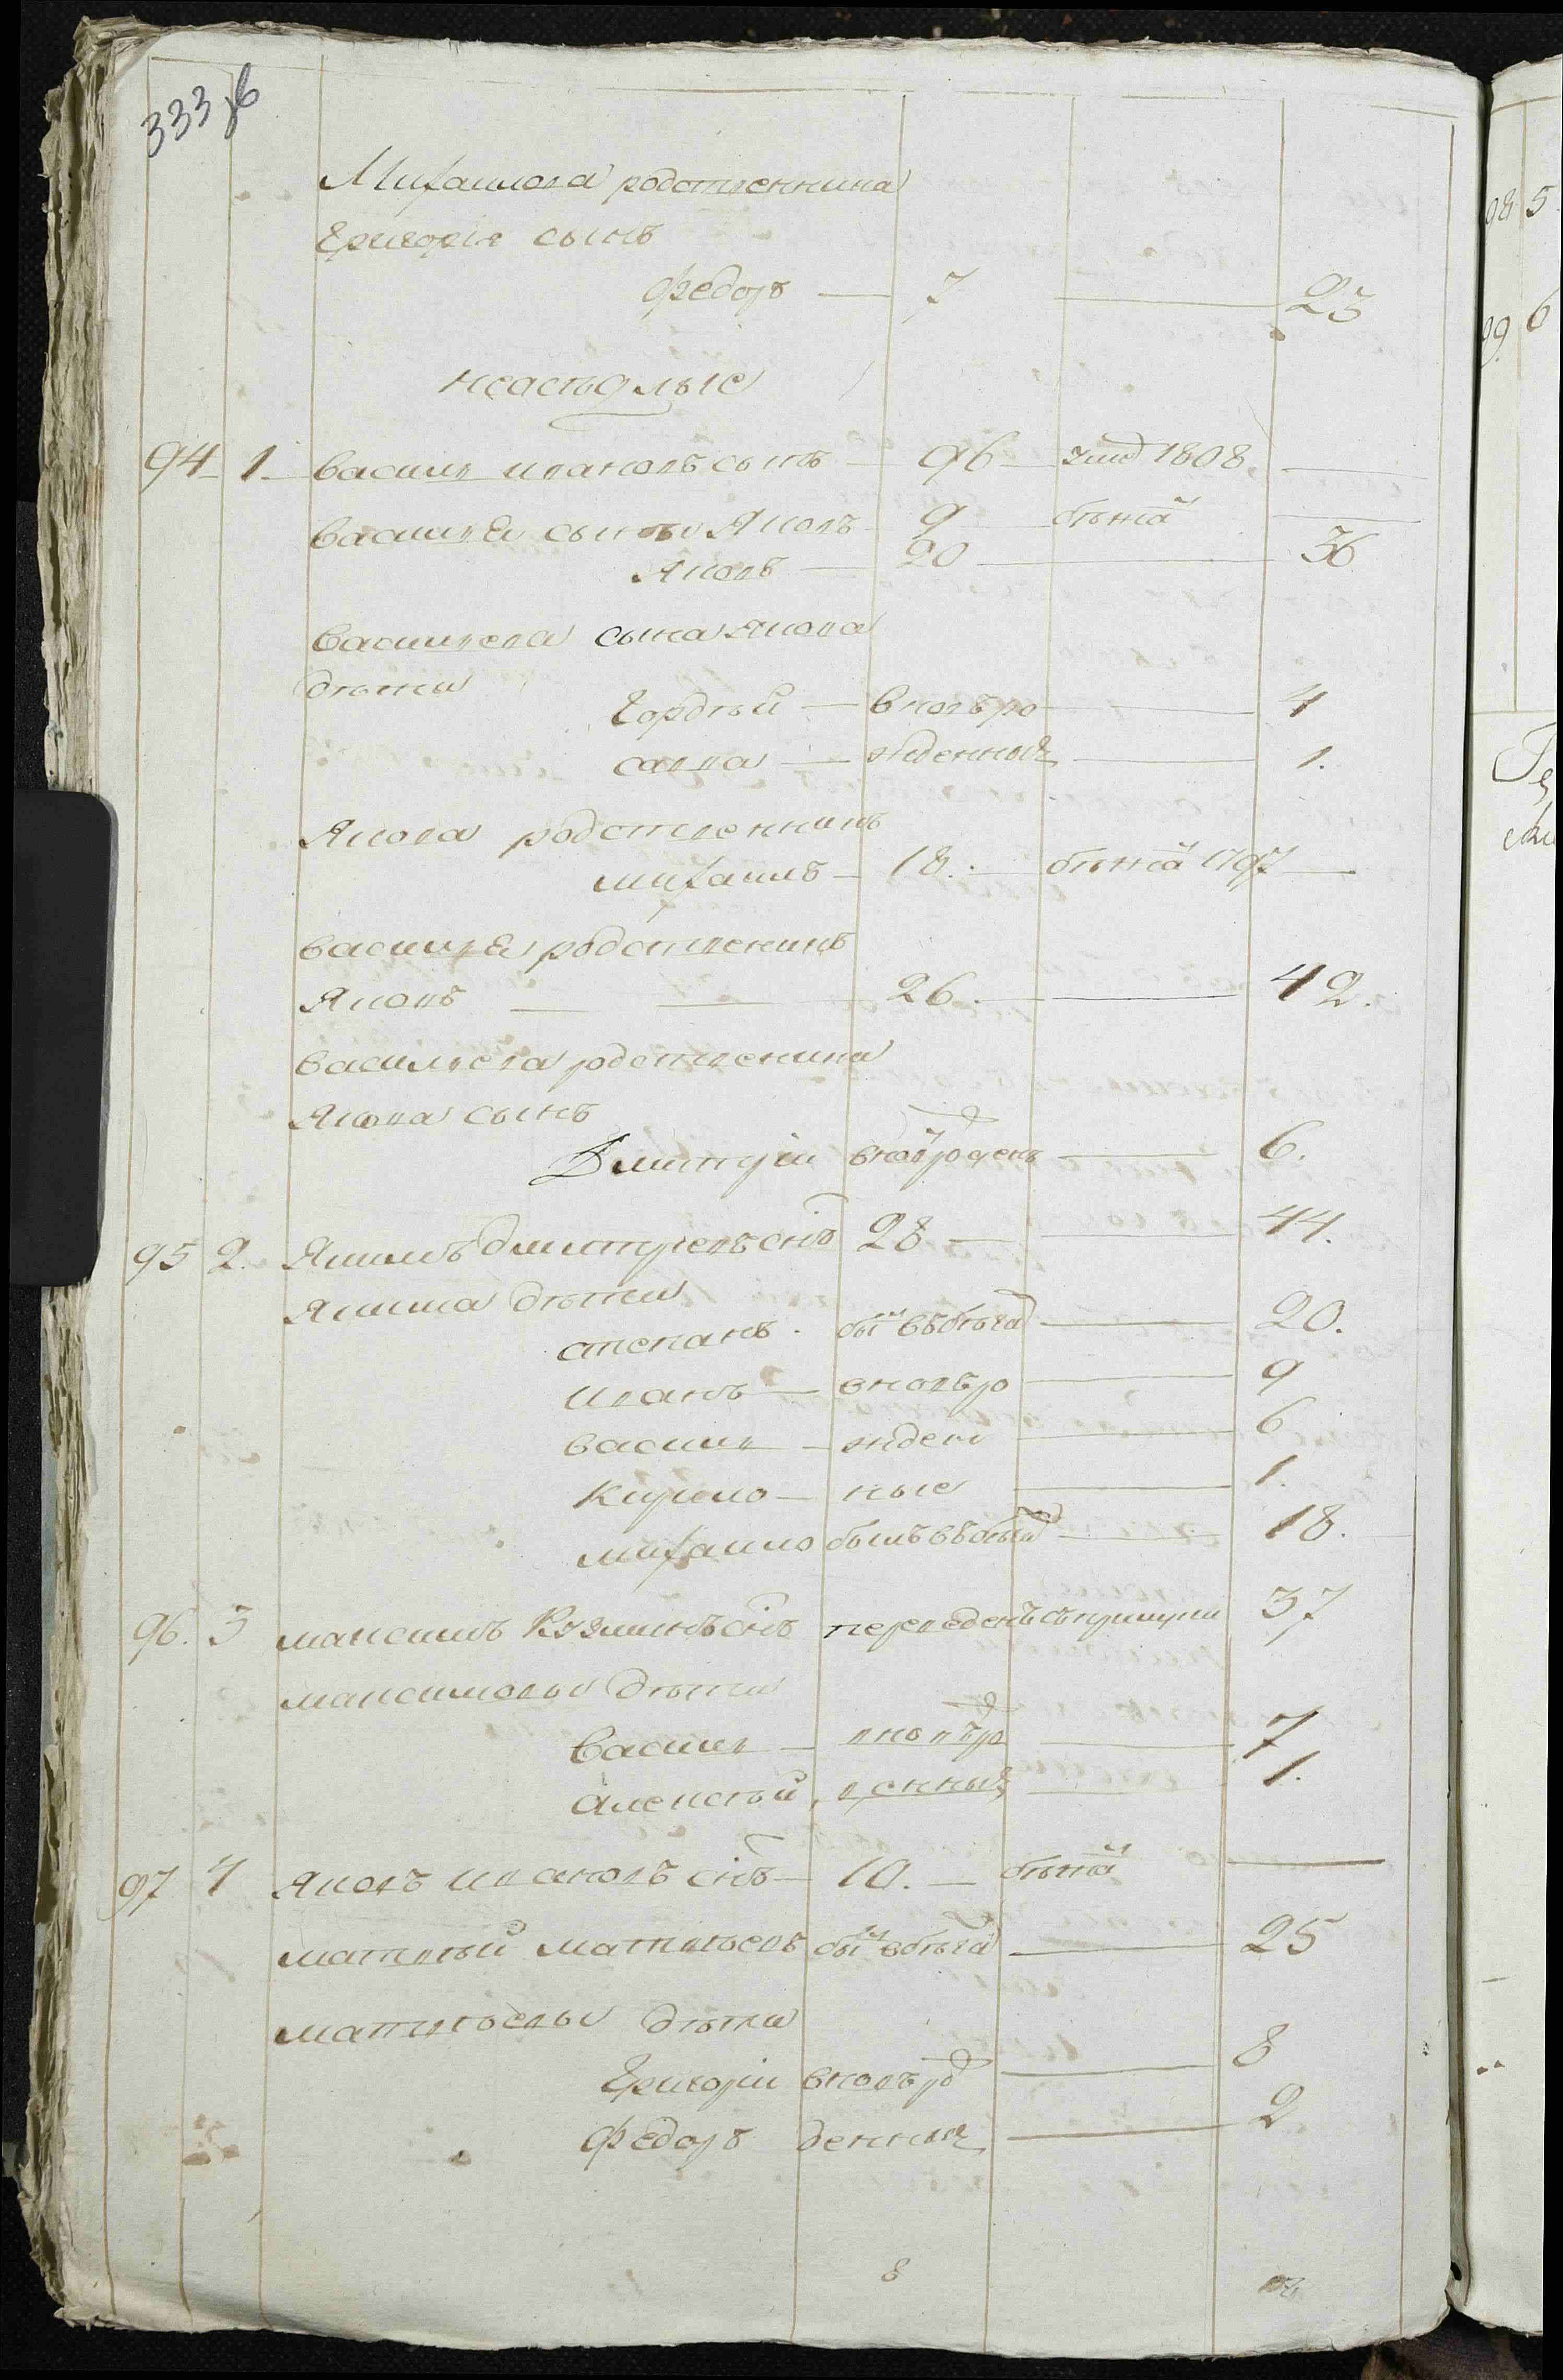 333 об
Михаилова родственника
Григорія сынъ
Федоръ — 7 — 23
неаседлые
94 1. Василе Ивановъ сынъ 96 умр 1808 —
Василея сынъ Яковъ 9 бѣжа —
Яковъ — 20 — 36
Василева сына Якова
дѣти
Гордѣй — вновь ро — 4
Савва — жденныя — 1.
Якова родственникъ
Михаилъ — 18. бѣжа 1797 —
Василея родственикъ
Яковъ — 26. — 42.
Васильева родственика
Якова сынъ
Дмитріи вновь рожденъ — 6.
95 2. Якимъ Дмитревъ снъ 28 — 44.
Якима дѣти
Степанъ бы въ бѣга — 20.
Иванъ — вновь ро — 9
Васили — жден — 6
Кирило — ные — 1.
Михаило былъ въ бѣга — 18.
96. 3 Максимъ Кузминъ снъ переведенъ съ 37
Максимовы дѣти
Василе — вновь ро — 7
Алексѣй — денныя — 1.
97 4 Яковъ Ивановъ снъ — 10. — бѣжа —
Матвѣй Матвѣевъ бы в бѣга — 25
Матвѣевы дѣти
Григоріи вновь ро — 8
Федоръ денныя — 2
8